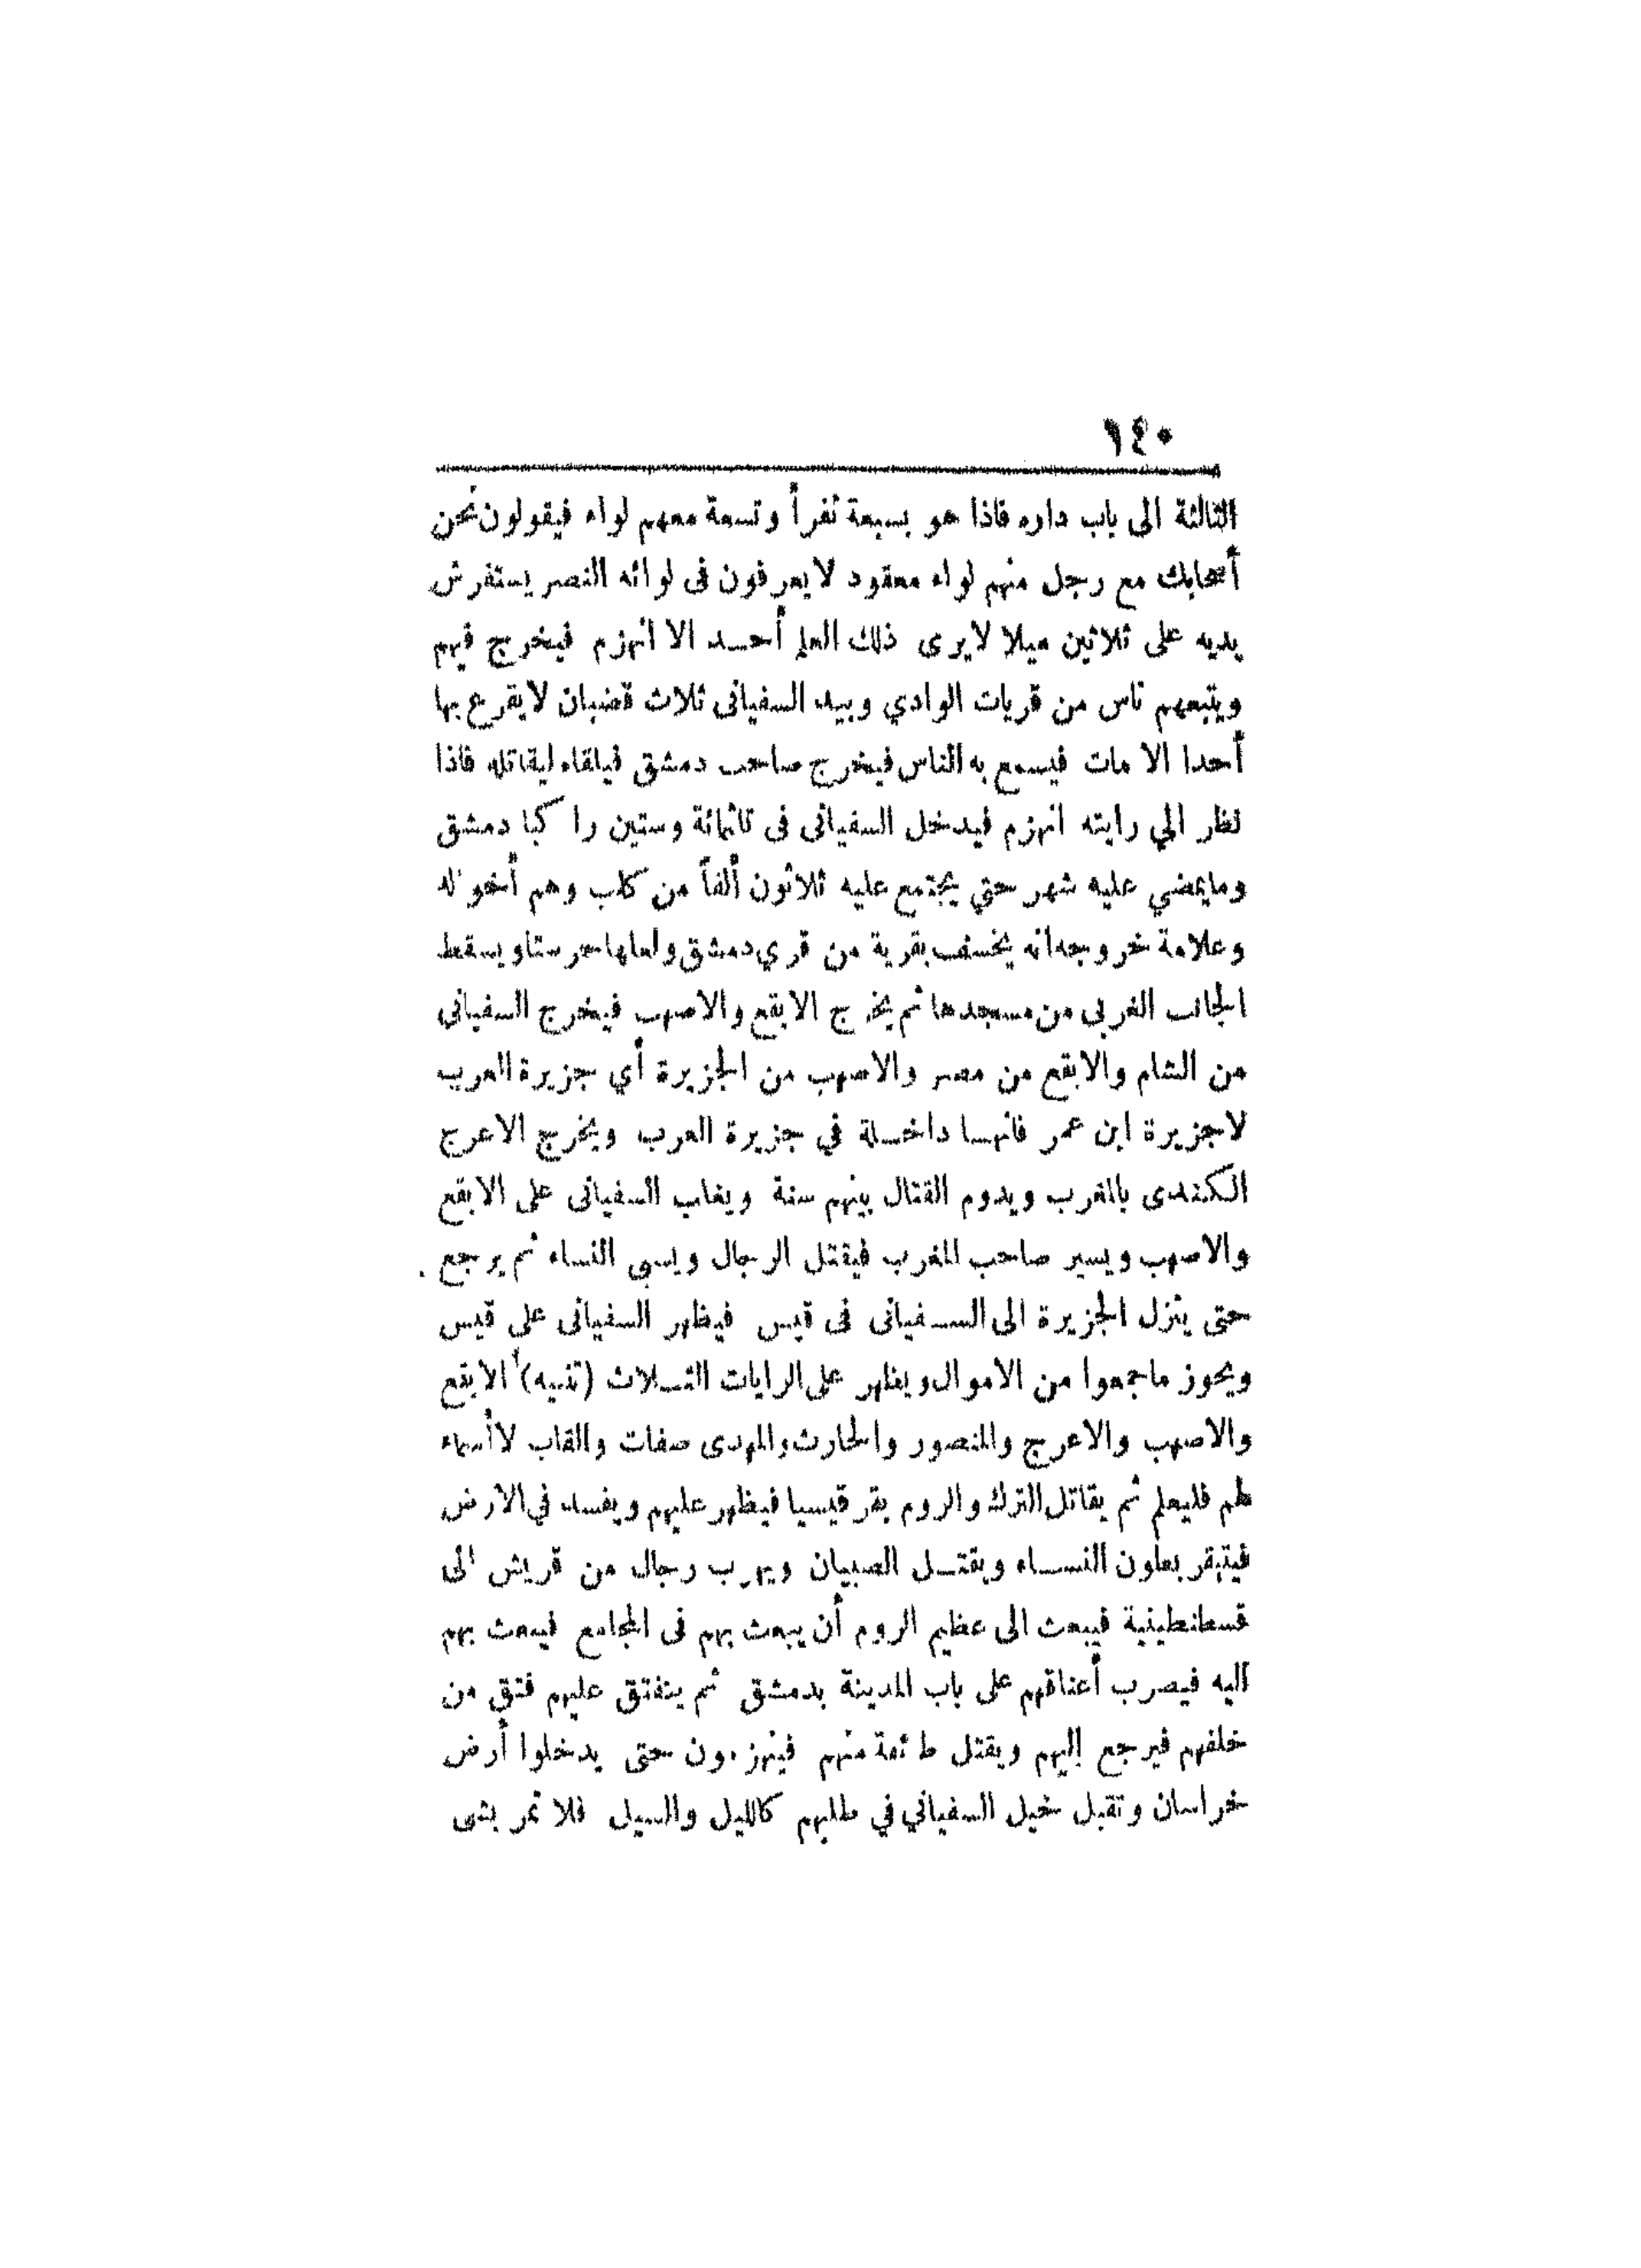 ١٤٠
الثالثة الى باب داره فاذا هو بسبعة نفراً وتسعة معهم لواء فيقولون نحن
أصحابك مع رجل منهم لواء معقود لا يعرفون فى لوائه النصر يستفرش
يديه على ثلاثين ميلا لا يرى ذلك العلم أحد الا انهزم فيخرج فيهم
ويتبعهم ناس من قريات الوادي وبيد السفيانى ثلاث قضبان لا يقرع بها
أحدا الا مات فيسمع به الناس فيخرج صاحب دمشق فيلقاه ليقاتله فاذا
نظر الي رايته انهزم فيدخل السفيانى فى ثلثمائة وستين راكبا دمشق
وما يمضي عليه شهر حتي يجتمع عليه ثلاثون ألفاً من كلب وهم أخواله
وعلامة خروجه انه يخسف بقرية من قري دمشق ولعلها حرستا ويسقط
الجانب الغربى من مسجدها ثم يخرج الابقع والاصهب فيخرج السفيانى
من الشام والابقع من مصر والاصهب من الجزيرة أي جزيرة العرب
لا جزيرة ابن عمر فانها داخلة في جزيرة العرب ويخرج الاعرج
الكندى بالمغرب ويدوم القتال بينهم سنة ويغلب السفيانى على الابقع
والاصهب ويسير صاحب المغرب فيقتل الرجال ويسبى النساء ثم يرجع
حتى ينزل الجزيرة الى السفيانى فى قيس فيظهر السفيانى على قيس
ويحوز ما جمعوا من الاموال ويظهر على الرايات الثلاث (تنبيه) الابقع
والاصهب والاعرج والمنصور والحارث والمهدى صفات والقاب لا أسماء
لهم فليعلم ثم يقاتل الترك والروم بقرقيسيا فيظهر عليهم ويفسد في الارض
فيتبقر بطون النساء ويقتل الصبيان ويهرب رجال من قريش الى
قسطنطينية فيبعث الى عظيم الروم أن يبعث بهم فى المجامع فيبعث بهم
اليه فيضرب أعناقهم على باب المدينة بدمشق ثم ينفتق عليهم فتق من
خلفهم فيرجع اليهم ويقتل طائفة منهم فينهزمون حتى يدخلوا أرض
خراسان وتقبل خيل السفياني في طلبهم كالليل والسيل فلا تمر بشى